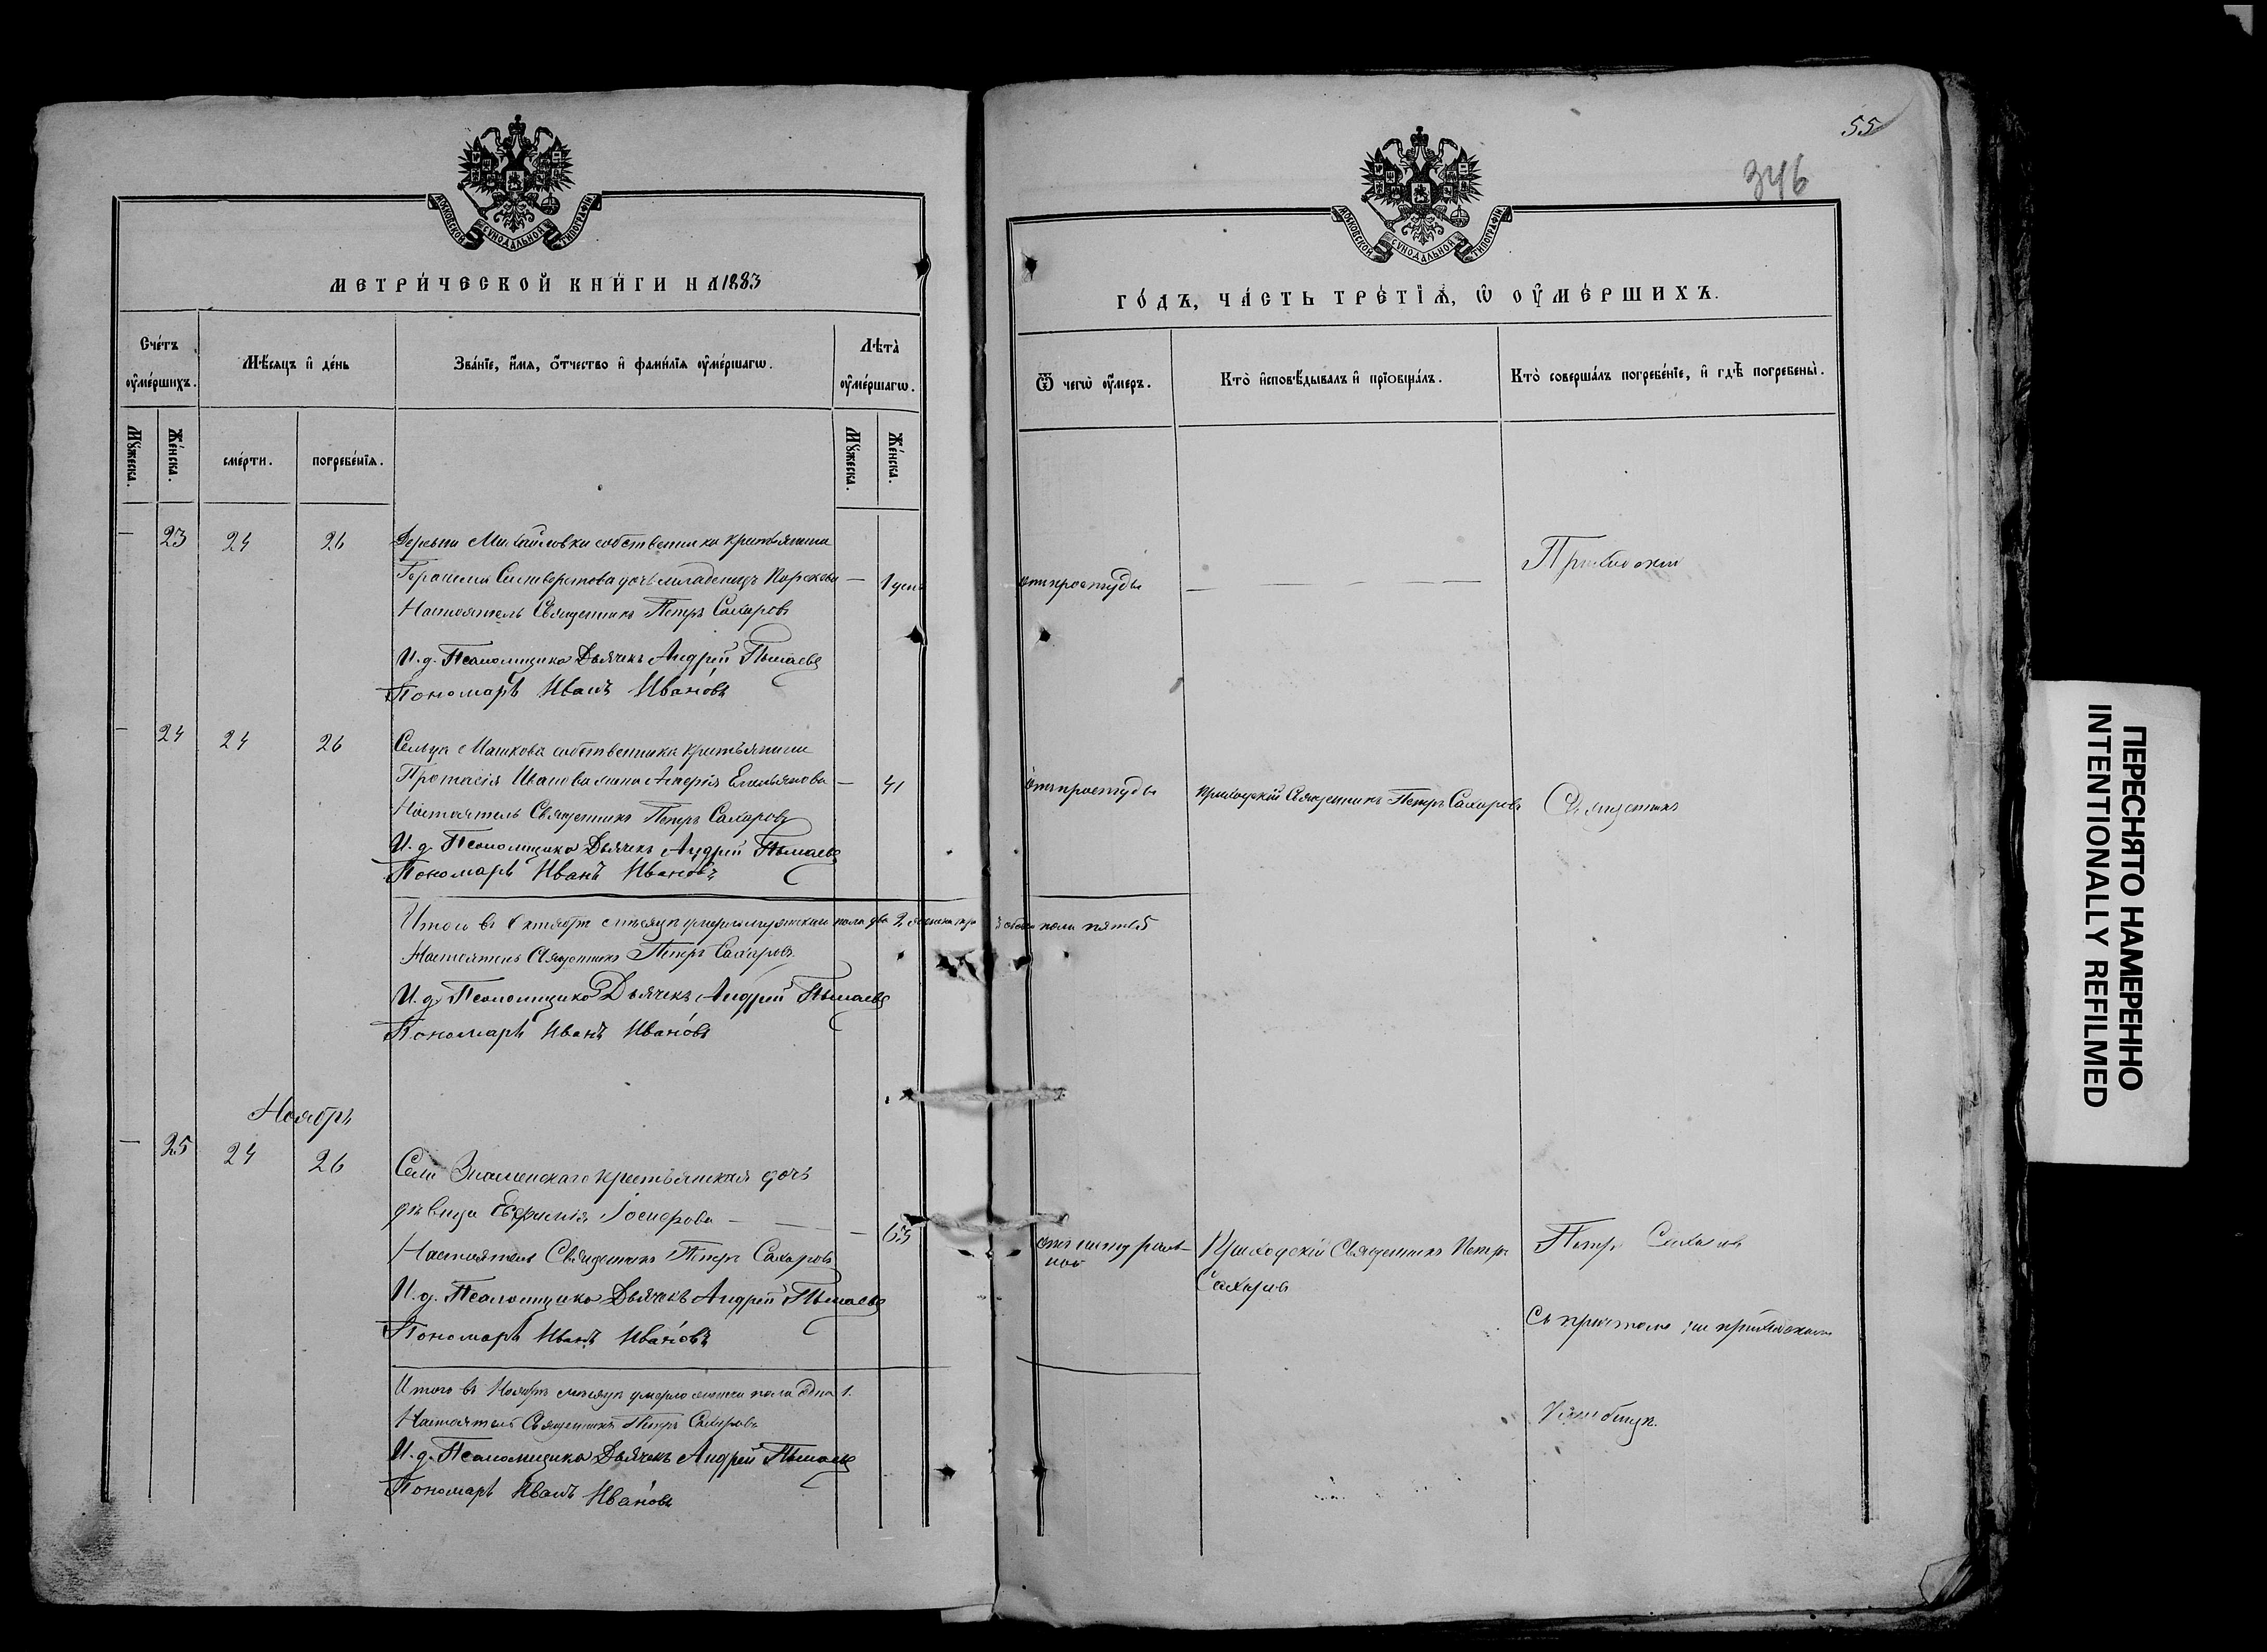 55
346
МОСКОВСКОЙ СѴНОДАЛЬНОЙ ТИПОГРАФІИ
МЕТРИ́ЧЕСКОЙ КНИ́ГИ НА 1883
Сче́тъ ᲂу҆ме́ршихъ.
Мѣ́сяцъ и҆ де́нь
Зва́нїе, и҆́мѧ, ѻ҆́тчество и҆ фами́лїѧ ᲂу҆ме́ршагѡ.
Лѣта̀ ᲂу҆ме́ршагѡ.
Мꙋ́жеска.
Же́нска.
сме́рти.
погребе́нїѧ.
Мꙋ́жеска.
Же́нска.
— 23 24 26 Деревни Михайловки собственника крестьянина
Герасима Сильверстова дочь младенецъ — 1 день
Настоятель Священникъ Петръ Сахаровъ
И. д. Псаломщика Дьячекъ Андрей
Пономарь Иванъ Ивановъ
— 24 24 26 Сельца Машкова собственника крестьянина
Протасія Иванова жена Емельянова — 41
Настоятель Священникъ Петръ Сахаровъ
И. д. Псаломщика Дьячекъ Андрей
Пономарь Иванъ Ивановъ
Итого въ Октябрѣ мѣсяцѣ умерло мужескаго пола два 2 женска три 3 обоего пола пять 5
Настоятель Священникъ Петръ Сахаровъ
И. д. Псаломщика Дьячекъ Андрей
Пономарь Иванъ Ивановъ
Ноябрь
— 25 24 26 Села Знаменскаго крестьянская дочь
дѣвица Евфимія — 65
Настоятель Священникъ Петръ Сахаровъ
И. д. Псаломщика Дьячекъ Андрей
Пономарь Иванъ Ивановъ
Итого въ Ноябрѣ мѣсяцѣ умерло женска пола одна 1.
Настоятель Священникъ Петръ Сахаровъ
И. д. Псаломщика Дьячекъ Андрей
Пономарь Иванъ Ивановъ
МОСКОВСКОЙ СѴНОДАЛЬНОЙ ТИПОГРАФІИ
ГО́ДЪ, ЧА́СТЬ ТРЕ́ТЇѦ, Ѡ҆ ОУ҆МЕ́РШИХЪ.
Ѿ чегѡ̀ ᲂу҆́меръ.
Кто̀ и҆сповѣ́дывалъ и҆ прїобща́лъ.
Кто̀ соверша́лъ погребе́нїе, и҆ гдѣ̀ погребены̀.
отъ простуды — Приходскій
отъ простуды Приходскій Священникъ Петръ Сахаровъ Священникъ
Приходскій Священникъ Петръ
Сахаровъ
Петръ Сахаровъ
Съ причтомъ на приходскомъ
кладбищѣ.
ПЕРЕСНЯТО НАМЕРЕННО
INTENTIONALLY REFILMED